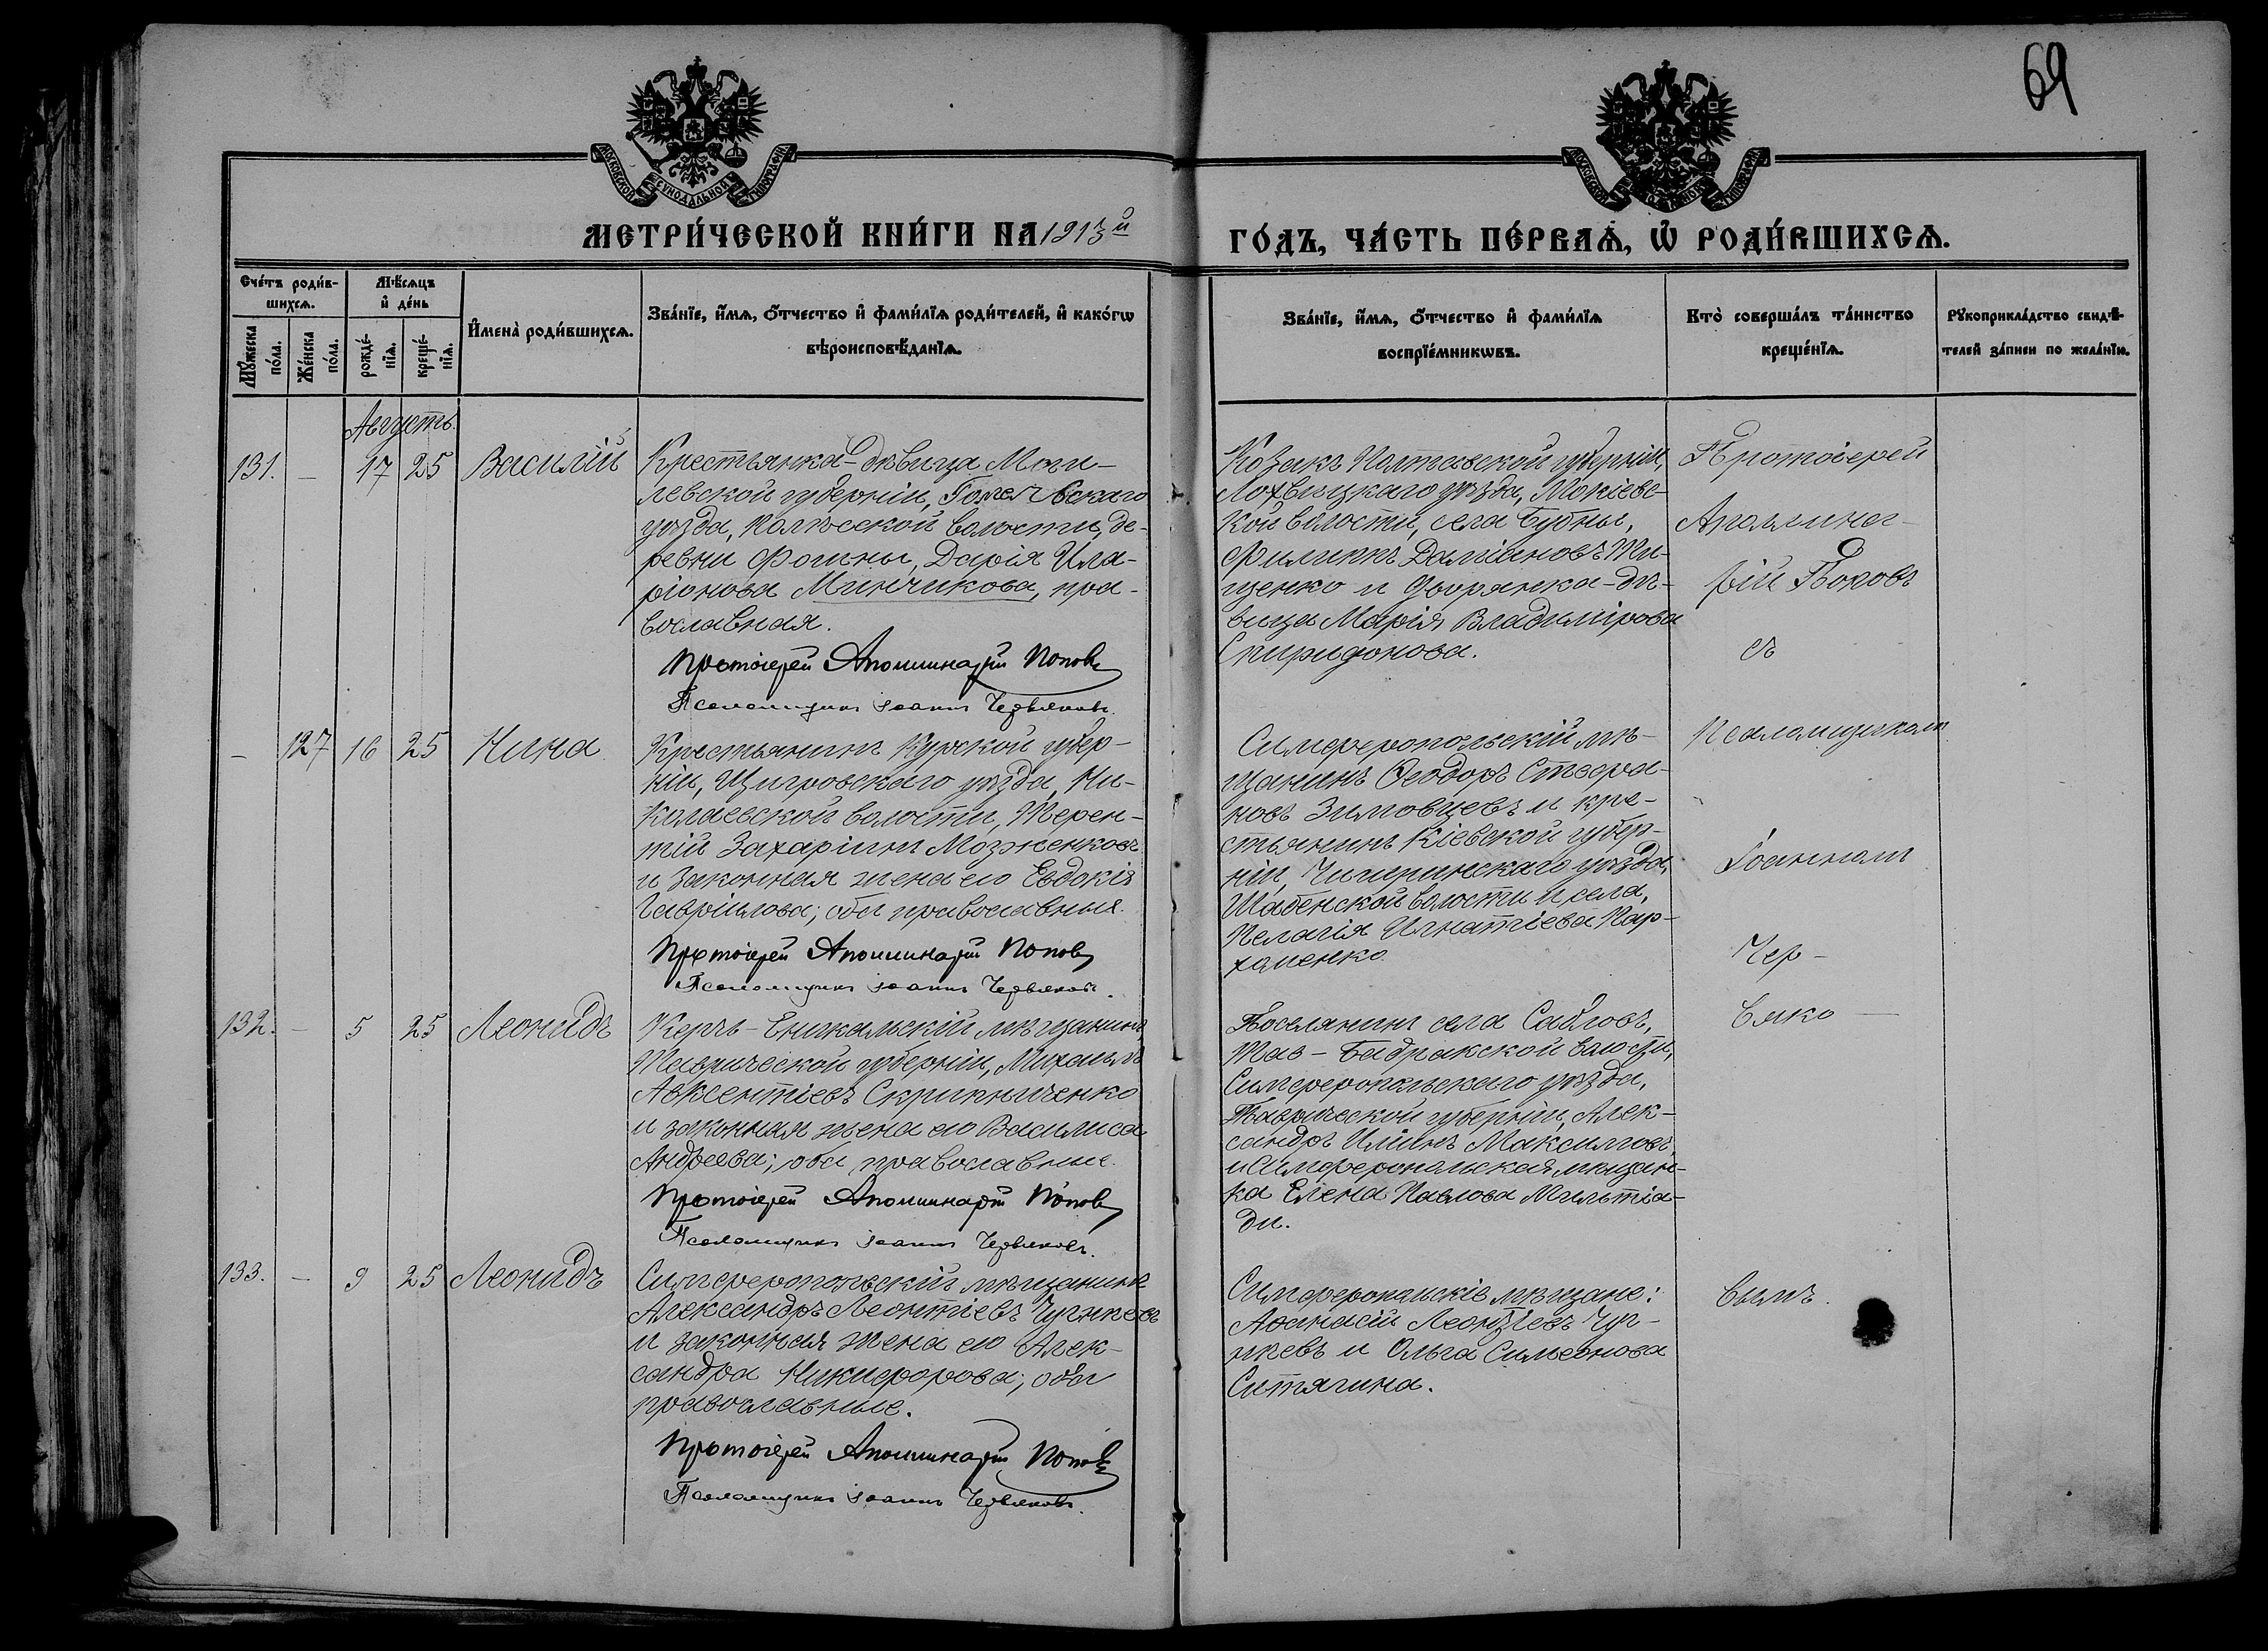 69
МОСКОВСКОЙ СѴНОДАЛЬНОЙ ТИПОГРАФІИ
МЕТРИ́ЧЕСКОЙ КНИ́ГИ НА 1913й
ГО́ДЪ, ЧА́СТЬ ПЕ́РВАѦ, Ѡ҆ РОДИ́ВШИХСѦ.
Сче́тъ роди́в-
шихсѧ.
Мꙋ́жеска по́ла.
Же́нска по́ла.
Мѣ́сѧцъ
и҆ де́нь
рожде́-
нїѧ.
креще́-
нїѧ.
И҆мена̀ роди́вшихсѧ.
Зва́нїе, и҆́мѧ, ѻ҆́тчество и҆ фами́лїѧ роди́телей, и҆ како́гѡ
вѣроисповѣ́данїѧ.
Зва́нїе, и҆́мѧ, ѻ҆́тчество и҆ фами́лїѧ
воспрїе́мникѡвъ.
Кто̀ соверша́лъ та́инство
креще́нїѧ.
Рꙋкоприкла́дство свидѣ́-
телей за́писи по жела́нїю.
Августъ.
131. — 17 25 Василій
Крестьянка-дѣвица Моги-
левской губерніи, Гомельскаго
уѣзда, волости, де-
ревни Фомины, Дарія Ила-
ріонова Минчикова, пра-
вославная.
Протоіерей Аполлинарій Поповъ
Псаломщикъ Іоаннъ Червяковъ.
Козакъ Полтавской губерніи,
Лохвицкаго уѣзда, Мокіевс-
кой волости, села Бубны,
Филиппъ Даміановъ Ти-
щенко и дворянка-дѣ-
вица Марія Владимірова
Спиридонова.
Протоіерей
Аполлинар-
рій Поповъ
съ
— 127 16 25 Нина
Крестьянинъ Курской губер-
ніи, Щигровскаго уѣзда, Ни-
колаевской волости, Терен-
тій Захаріинъ Мозженковъ
и законная жена его Евдокія
Гавріилова; оба православные.
Протоіерей Аполлинарій Поповъ
Псаломщикъ Іоаннъ Червяковъ.
Симферопольскій мѣ-
щанинъ Ѳеодоръ Стефа-
новъ Зимовцевъ и кре-
стьянинъ Кіевской губер-
ніи, Чигиринскаго уѣзда,
волости и села,
Пелагія Игнатіева Пар-
хоменко.
Псаломщикомъ
Іоанномъ
Чер-
132. — 5 25 Леонидъ
Керчь-Еникальскій мѣщанинъ,
Таврической губерніи, Михаилъ
Авксентіевъ Скрипниченко
и законная жена его Василиса
Андреева; оба православные.
Протоіерей Аполлинарій Поповъ
Псаломщикъ Іоаннъ Червяковъ.
Поселянинъ села Сабловъ,
Тав-Бадракской волости,
Симферопольскаго уѣзда,
Таврической губерніи, Алек-
сандръ Илiинъ Максимовъ,
и Симферопольская мѣщан-
ка Елена Павлова Мильтіа-
ди.
вяко —
133. — 9 25 Леонидъ
Симферопольскій мѣщанинъ
Александръ Леонтіевъ
и законная жена его Алек-
сандра Никифорова; оба
православные.
Протоіерей Аполлинарій Поповъ
Псаломщикъ Іоаннъ Червяковъ.
Симферопольскіе мѣщане:
Аѳанасій Леонтіевъ
и Ольга Симеонова
Ситягина.
вымъ.